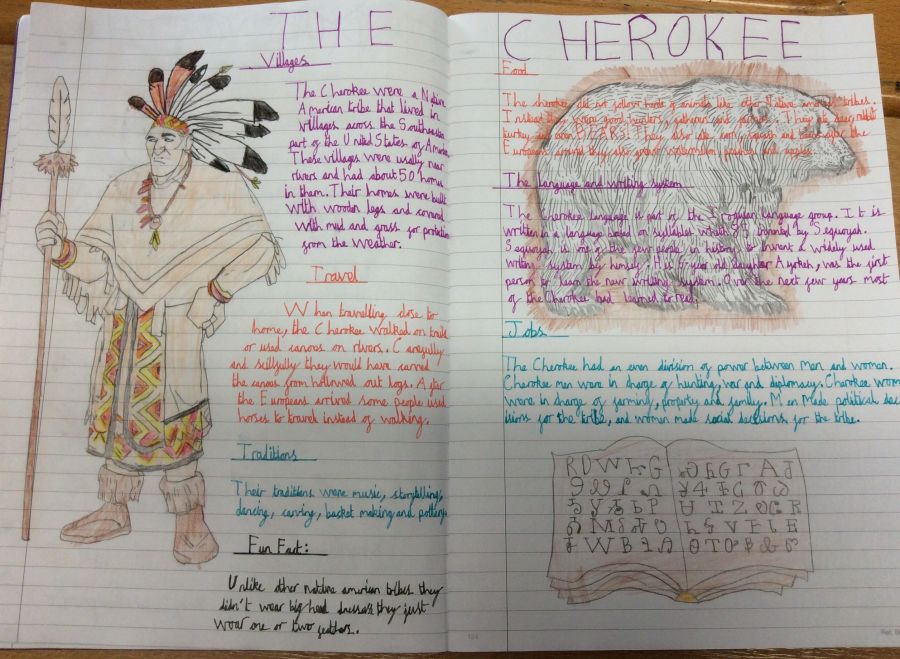 THE CHEROKEE
Villages
The Cherokee were a Native
American tribe that lived in
villages across the Southeastern
part of the United States of America.
These villages were usually near
rivers and had about 50 homes
in them. Their homes were built
with wooden logs and covered
with mud and grass for protection
from the weather.
Travel
When travelling close to
home, the Cherokee walked on trails
or used canoes on rivers. Carefully
and skillfully they would have carved
the canoes from hollowed out logs. After
the Europeans arrived some people used
horses to travel instead of walking.
Traditions
Their traditions were music, storytelling,
dancing, carving, basket making and pottery.
Fun Fact:
Unlike other native american tribes they
didn't wear big head dresses they just
wore one or two feathers.
Food
The cherokee did not follow herds of animals like other Native american tribes.
Instead they were good hunters, gatherers and farmers. They ate deer, rabbit
turkey and even BEARS! They also ate corn, squash and the
Europeans arrived they also grew watermelon peaches and apples.
The language and writing system
The Cherokee language is part of the Iroquian language group. It is
written in a language based on syllables which invented by Sequoyah.
Sequoyah is one of the few people in history to invent a widely used
writing system by himself. His 6 year old daughter Ayokeh, was the first
person to learn the new writing system. Over the next few years most
of the Cherokee had learned to read.
Jobs
The Cherokee had an even division of power between men and women.
Cherokee men were in charge of hunting, war and diplomacy. Cherokee wom
were in charge of farming, property and family. Men made political dec
isions for the tribe, and women made social decisions for the tribe.
ᎡᎠᎳᏥᏀ ᎧᏂᏩᎱᎪᎫ
124